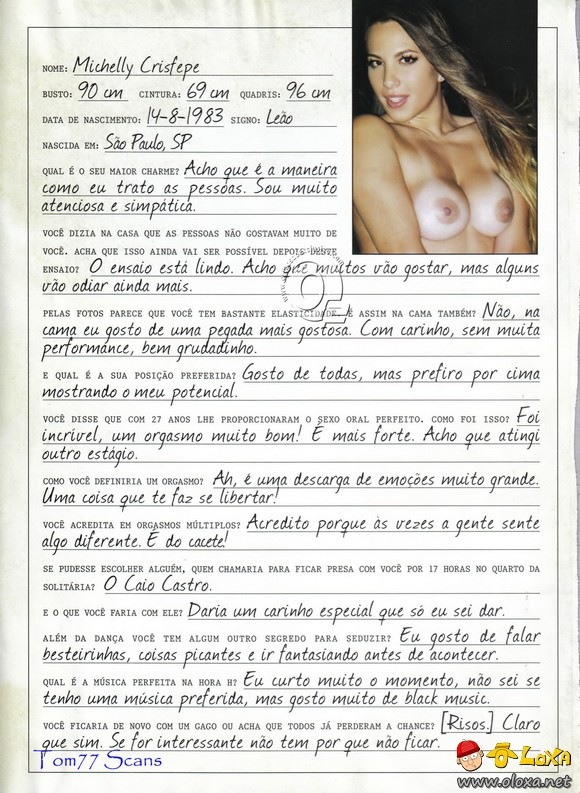 NOME: Michelly Crisfepe
BUSTO: 90 cm CINTURA: 69 cm QUADRIS: 96 cm
DATA DE NASCIMENTO: 14-8-1983 SIGNO: Leão
NASCIDA EM: São Paulo, SP
QUAL É O SEU MAIOR CHARME? Acho que é a maneira
como eu trato as pessoas. Sou muito
atenciosa e simpática.
VOCÊ DIZIA NA CASA QUE AS PESSOAS NÃO GOSTAVAM MUITO DE
VOCÊ. ACHA QUE ISSO AINDA VAI SER POSSÍVEL DEPOIS DESTE
ENSAIO? O ensaio está lindo. Acho que muitos vão gostar, mas alguns
vão odiar ainda mais.
PELAS FOTOS PARECE QUE VOCÊ TEM BASTANTE ELASTICIDADE. É ASSIM NA CAMA TAMBÉM? Não, na
cama eu gosto de uma pegada mais gostosa. Com carinho, sem muita
performance, bem grudadinho.
E QUAL É A SUA POSIÇÃO PREFERIDA? Gosto de todas, mas prefiro por cima
mostrando o meu potencial.
VOCÊ DISSE QUE COM 27 ANOS LHE PROPORCIONARAM O SEXO ORAL PERFEITO. COMO FOI ISSO? Foi
incrível, um orgasmo muito bom! É mais forte. Acho que atingi
outro estágio.
COMO VOCÊ DEFINIRIA UM ORGASMO? Ah, é uma descarga de emoções muito grande.
Uma coisa que te faz se libertar!
VOCÊ ACREDITA EM ORGASMOS MÚLTIPLOS? Acredito porque às vezes a gente sente
algo diferente. É do cacete!
SE PUDESSE ESCOLHER ALGUÉM, QUEM CHAMARIA PARA FICAR PRESA COM VOCÊ POR 17 HORAS NO QUARTO DA
SOLITÁRIA? O Caio Castro.
E O QUE VOCÊ FARIA COM ELE? Daria um carinho especial que só eu sei dar.
ALÉM DA DANÇA VOCÊ TEM ALGUM OUTRO SEGREDO PARA SEDUZIR? Eu gosto de falar
besteirinhas, coisas picantes e ir fantasiando antes de acontecer.
QUAL É A MÚSICA PERFEITA NA HORA H? Eu curto muito o momento, não sei se
tenho uma música preferida, mas gosto muito de black music.
VOCÊ FICARIA DE NOVO COM UM GAGO OU ACHA QUE TODOS JÁ PERDERAM A CHANCE? [Risos.] Claro
que sim. Se for interessante não tem por que não ficar.
Tom77 Scans
O LOXA
www.oloxa.net